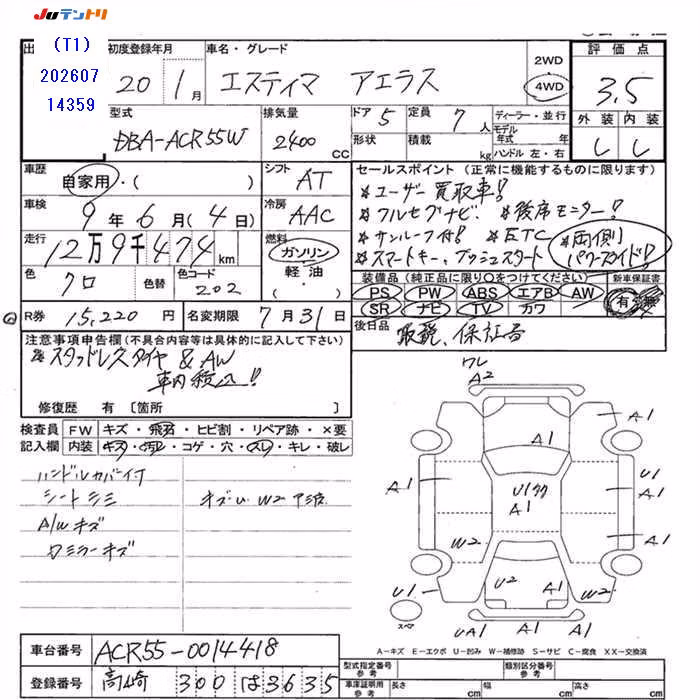 JUテントリ
(T1)
202607
14359
初度登録年月
20 1月
車名・グレード
エスティマ アエラス
2WD
4WD
評価点
3.5
型式
DBA-ACR55W
排気量
2400
CC
ドア 5
定員 7人
形状
積載 kg
ディーラー・並行
モデル年式 年
ハンドル 左・右
外装 内装
車歴
自家用・( )
シフト
AT
セールスポイント(正常に機能するものに限ります)
※ユーザー買取車!!
※フルセグナビ! ※後席モニター!!
※サンルーフ付! ※ETC ※両側
※スマートキー、プッシュスタート パワースライド!!
車検
9年6月(4日)
冷房
AAC
走行
12万9千474km
燃料
ガソリン
軽油・
( )
色
クロ
色替
色コード
202
装備品(純正品に限り○をつけてください)
新車保証書
PS PW ABS エアB AW
SR ナビ TV カワ
有・無
R券 15,220円
名変期限 7月31日
後日品
取説、保証書
注意事項申告欄(不具合内容等は具体的に記入して下さい)
※スタッドレスタイヤ&AW
車内積込!!
修復歴 有〔箇所 〕
検査員
記入欄
FW キズ・飛石・ヒビ割・リペア跡・×要
内装 キズ・汚レ・コゲ・穴・スレ・キレ・破レ
ハンドルカバー付
シートシミ
キズ・U W2
A/Wキズ
ワレ
A2
A1
A1
A1
A1
U1
A1
A1
W2
W2
U2
A1
U1
U1
スペア
UA1
A-キズ E-エクボ U-凹み W-補修跡 S-サビ C-腐食 XX-交換済
車台番号
ACR55-0014418
登録番号
高崎 300 は 3635
型式指定番号
参考
類別区分番号
参考
車庫証明用
参考
長さ cm
幅 cm
高さ cm